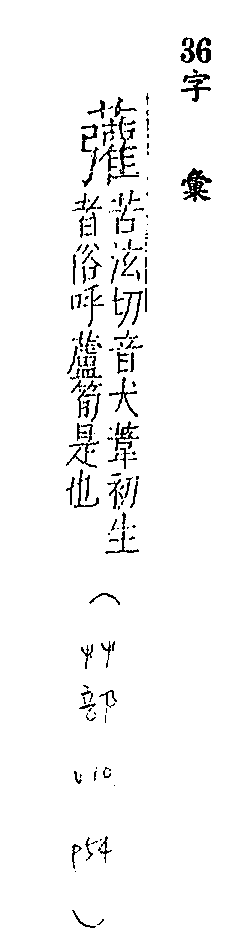 36字 彙
虇
苦泫切音犬葦初生
者俗呼蘆筍是也
(艸部 v10 p54)